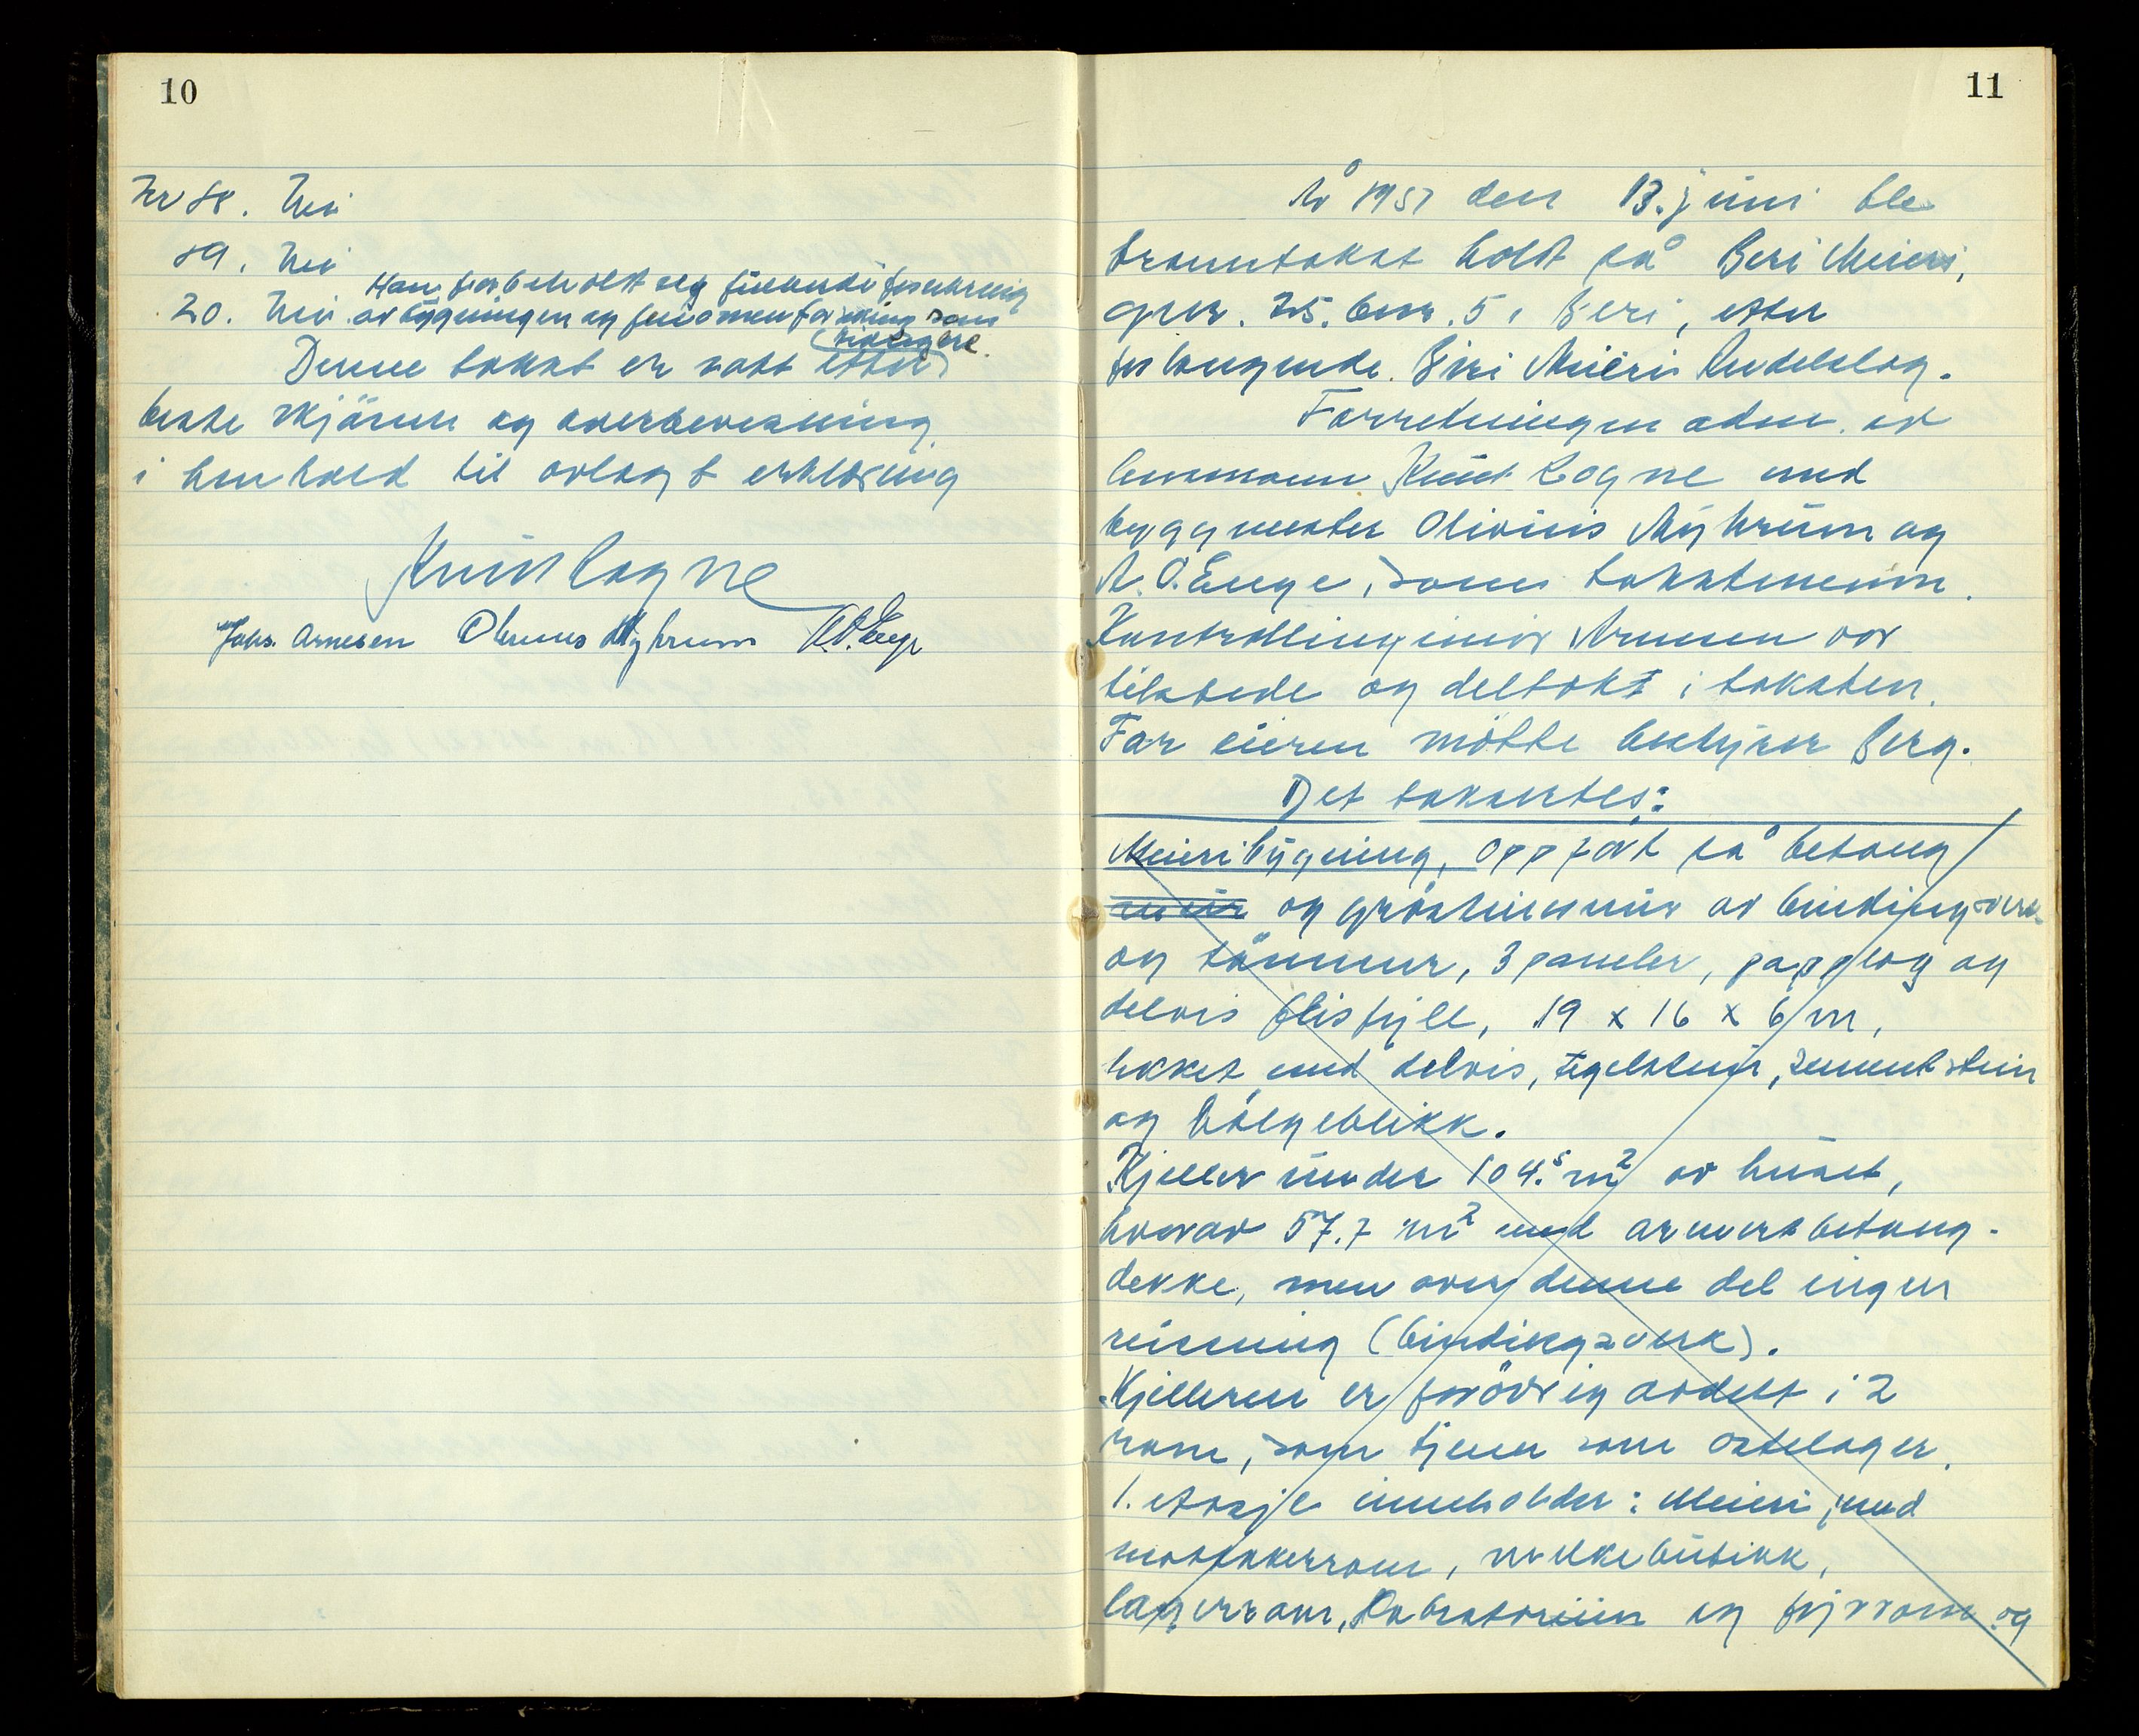 10
Nr 18. Nei
19. Nei
20. Nei. Han forbeholdt seg
av bygningen og som
tidligere.
Denne takst er satt etter
beste skjönn og overbevisning
i henhold til avlagt erklæring
Knut Logne
Johs. Arnesen Olivius Myhrum A.O. Enge
11
År 1951 den 13. juni ble
branntakst holdt på Biri Meieri,
gnr. 25. bnr. 5 i Biri, etter
forlangende. Biri Meieri Andelslag.
Forretningen adm. av
lensmann Knut Logne med
byggmester Olivius Myhrum og
A. O. Enge, som takstmenn.
Kontrollingeniör Arnesen var
tilstede og deltokt i taksten.
For eieren mötte bestyrer Berg.
Det takstertes:
Meieribygning, oppfört på betong
mur og gråsteinsmur av bindingsverk
og tömmer, 3 paneler, papplag og
delvis flisfyll, 19 x 16 x 6 m,
tekket med delvis, tegelstein, sementstein
og bölgeblikk.
Kjeller under 104.5 m2 av huset,
hvorav 57.7 m2 med armertbetong-
dekke, men over denne del ingen
reisning (bindingsverk).
Kjelleren er forövrig avdelt i 2
rom, som tjener som ostelager.
1. etasje inneholder: Meieri, med
mottakerrom, melkebutikk,
lagerrom, Laboratorium og fyrrom og